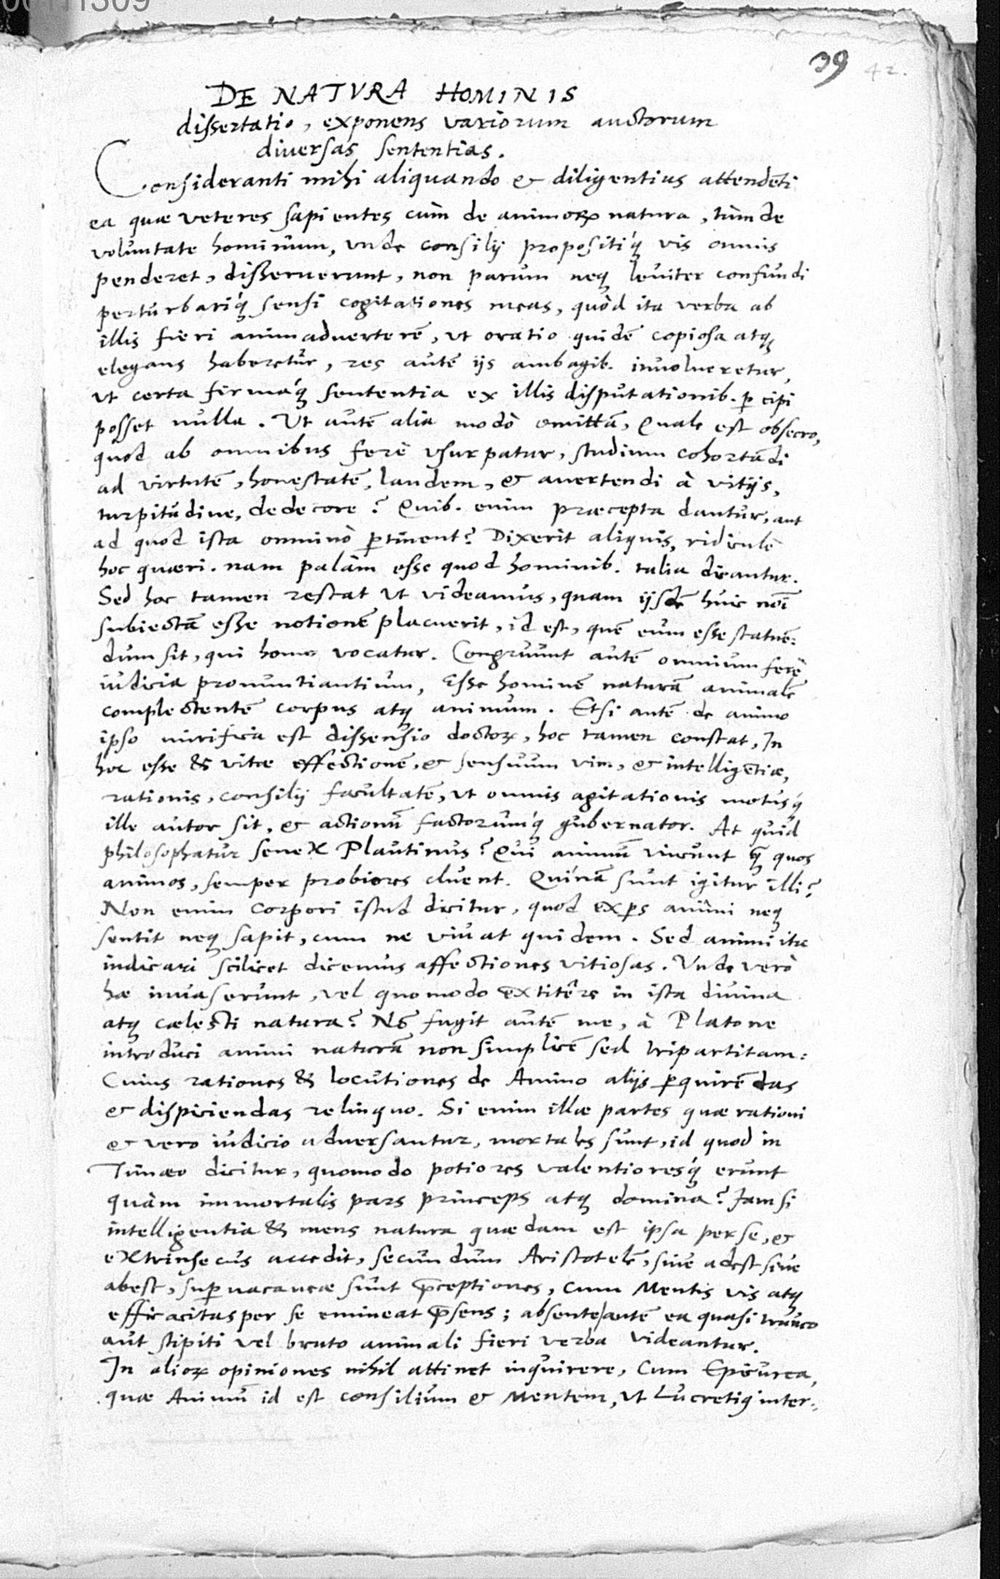 39 42.
DE NATVRA HOMINIS
dissertatio, exponens variorum auctorum
diversas sententias.
Consideranti mihi aliquando & diligentius attendēti
ea quæ veteres sapientes cùm de animorꝝ natura, tùm de
voluntate hominum, vnde consilij propositiq́ vis omnis
penderet, disseruerunt, non parum neqꝫ leviter confundi
perturbariq́ sensi cogitationes meas, quòd ita verba ab
illis fieri animadverterē, ut oratio quidē copiosa atqꝫ
elegans haberetur, res autē iis ambagib. involveretur,
ut certa firmaq́ sententia ex illis disputationib. ꝑcipi
posset nulla. Ut autē alia modò omittā, Quale est obsecro,
quod ab omnibus ferè vsurpatur, studium cohortādi
ad virtutē, honestatē, laudem, & avertendi à vitijs,
turpitudine, dedecore? Quib. enim præcepta dantur, aut
ad quod ista omninò ꝑtinent? Dixerit aliquis, ridiculè
hoc quæri. nam palàm esse quod hominib. talia dicantur.
Sed hoc tamen restat ut videamus, quam ijsdē huic noī
subiectā esse notionē placuerit, id est, quē eum esse statuē=
dum sit, qui homo vocatur. Congruunt autē omnium ferè
iudicia pronuntiantium, Esse hominē naturā animalē
complectentē corpus atqꝫ animum. Etsi autē de animo
ipso mirifica est dissensio doctorꝝ, hoc tamen constat, In
hoc esse & vitæ effectionē, & sensuum vim, & intelligētiæ,
rationis, consilij facultatē, ut omnis agitationis motusq́
ille autor sit, & actionū factorumq́ gubernator. At quid
philosophatur senex Plautinus? Qui animū vincunt quos
animos, semper probiores cluent. Quinā sunt igitur illi?
Non enim corpori istud dicitur, quod exꝑs animi neqꝫ
sentit neqꝫ sapit, cum ne vivat quidem. Sed animi ita
indicari scilicet dicemus affectiones vitiosas. Vnde verò
hæ invaserunt, vel quomodo extitêre in ista divina
atqꝫ cælesti natura? Nō fugit autē me, à Platone
introduci animi naturā non simplicē sed tripartitam:
Cuius rationes & locutiones de Animo alijs ꝑquirēdas
& dispiciendas relinquo. Si enim illæ partes quæ rationi
& vero iudicio adversantur, mortales sunt, id quod in
Timæo dicitur, quomodo potiores valentioresq́ erunt
quàm immortalis pars princeps atqꝫ domina? Iam si
intelligentia & mens natura quædam est ipsa per se, &
extrinsecus accedit, secundum Aristotelē, sive adest sive
abest, suꝑvacaneæ sunt p̄ceptiones, Cum Mentis vis atqꝫ
efficacitas per se emineat p̄sens; absente autē ea quasi trunco
aut stipiti vel bruto animali fieri verba videantur.
In aliorꝝ opiniones nihil attinet inquirere, Cum Epicurea,
quæ Animū id est consilium & Mentem, ut Lucretiꝰ inter=